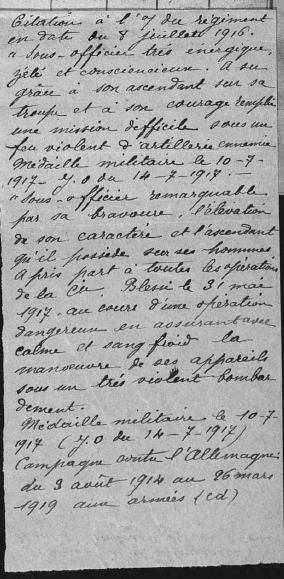 Citation à l'O/ du régiment
en date du 8 juillet 1916.
"Sous-officier très énergique,
zélé et consciencieux. A su
grâce à son ascendant sur sa
troupe et à son courage remplir
une mission difficile sous un
feu violent d'artillerie ennemie
Médaille militaire le 10-7-
1917 - J.O du 14-7-1917. -
"Sous-officier remarquable
par sa bravoure, l'élévation
de son caractère et l'ascendant
qu'il possède sur ses hommes
A pris part à toutes les opérations
de la Cie. Blessé le 31 mai
1917. au cours d'une opération
dangereuse en assurant avec
calme et sang froid la
manoeuvre de ses appareils
sous un très violent bombar
dement.
Médaille militaire le 10-7-
1917 (J.O du 14-7-1917)
Campagne contre l'Allemagne
du 3 août 1914 au 26 mars
1919 aux armées (cd)